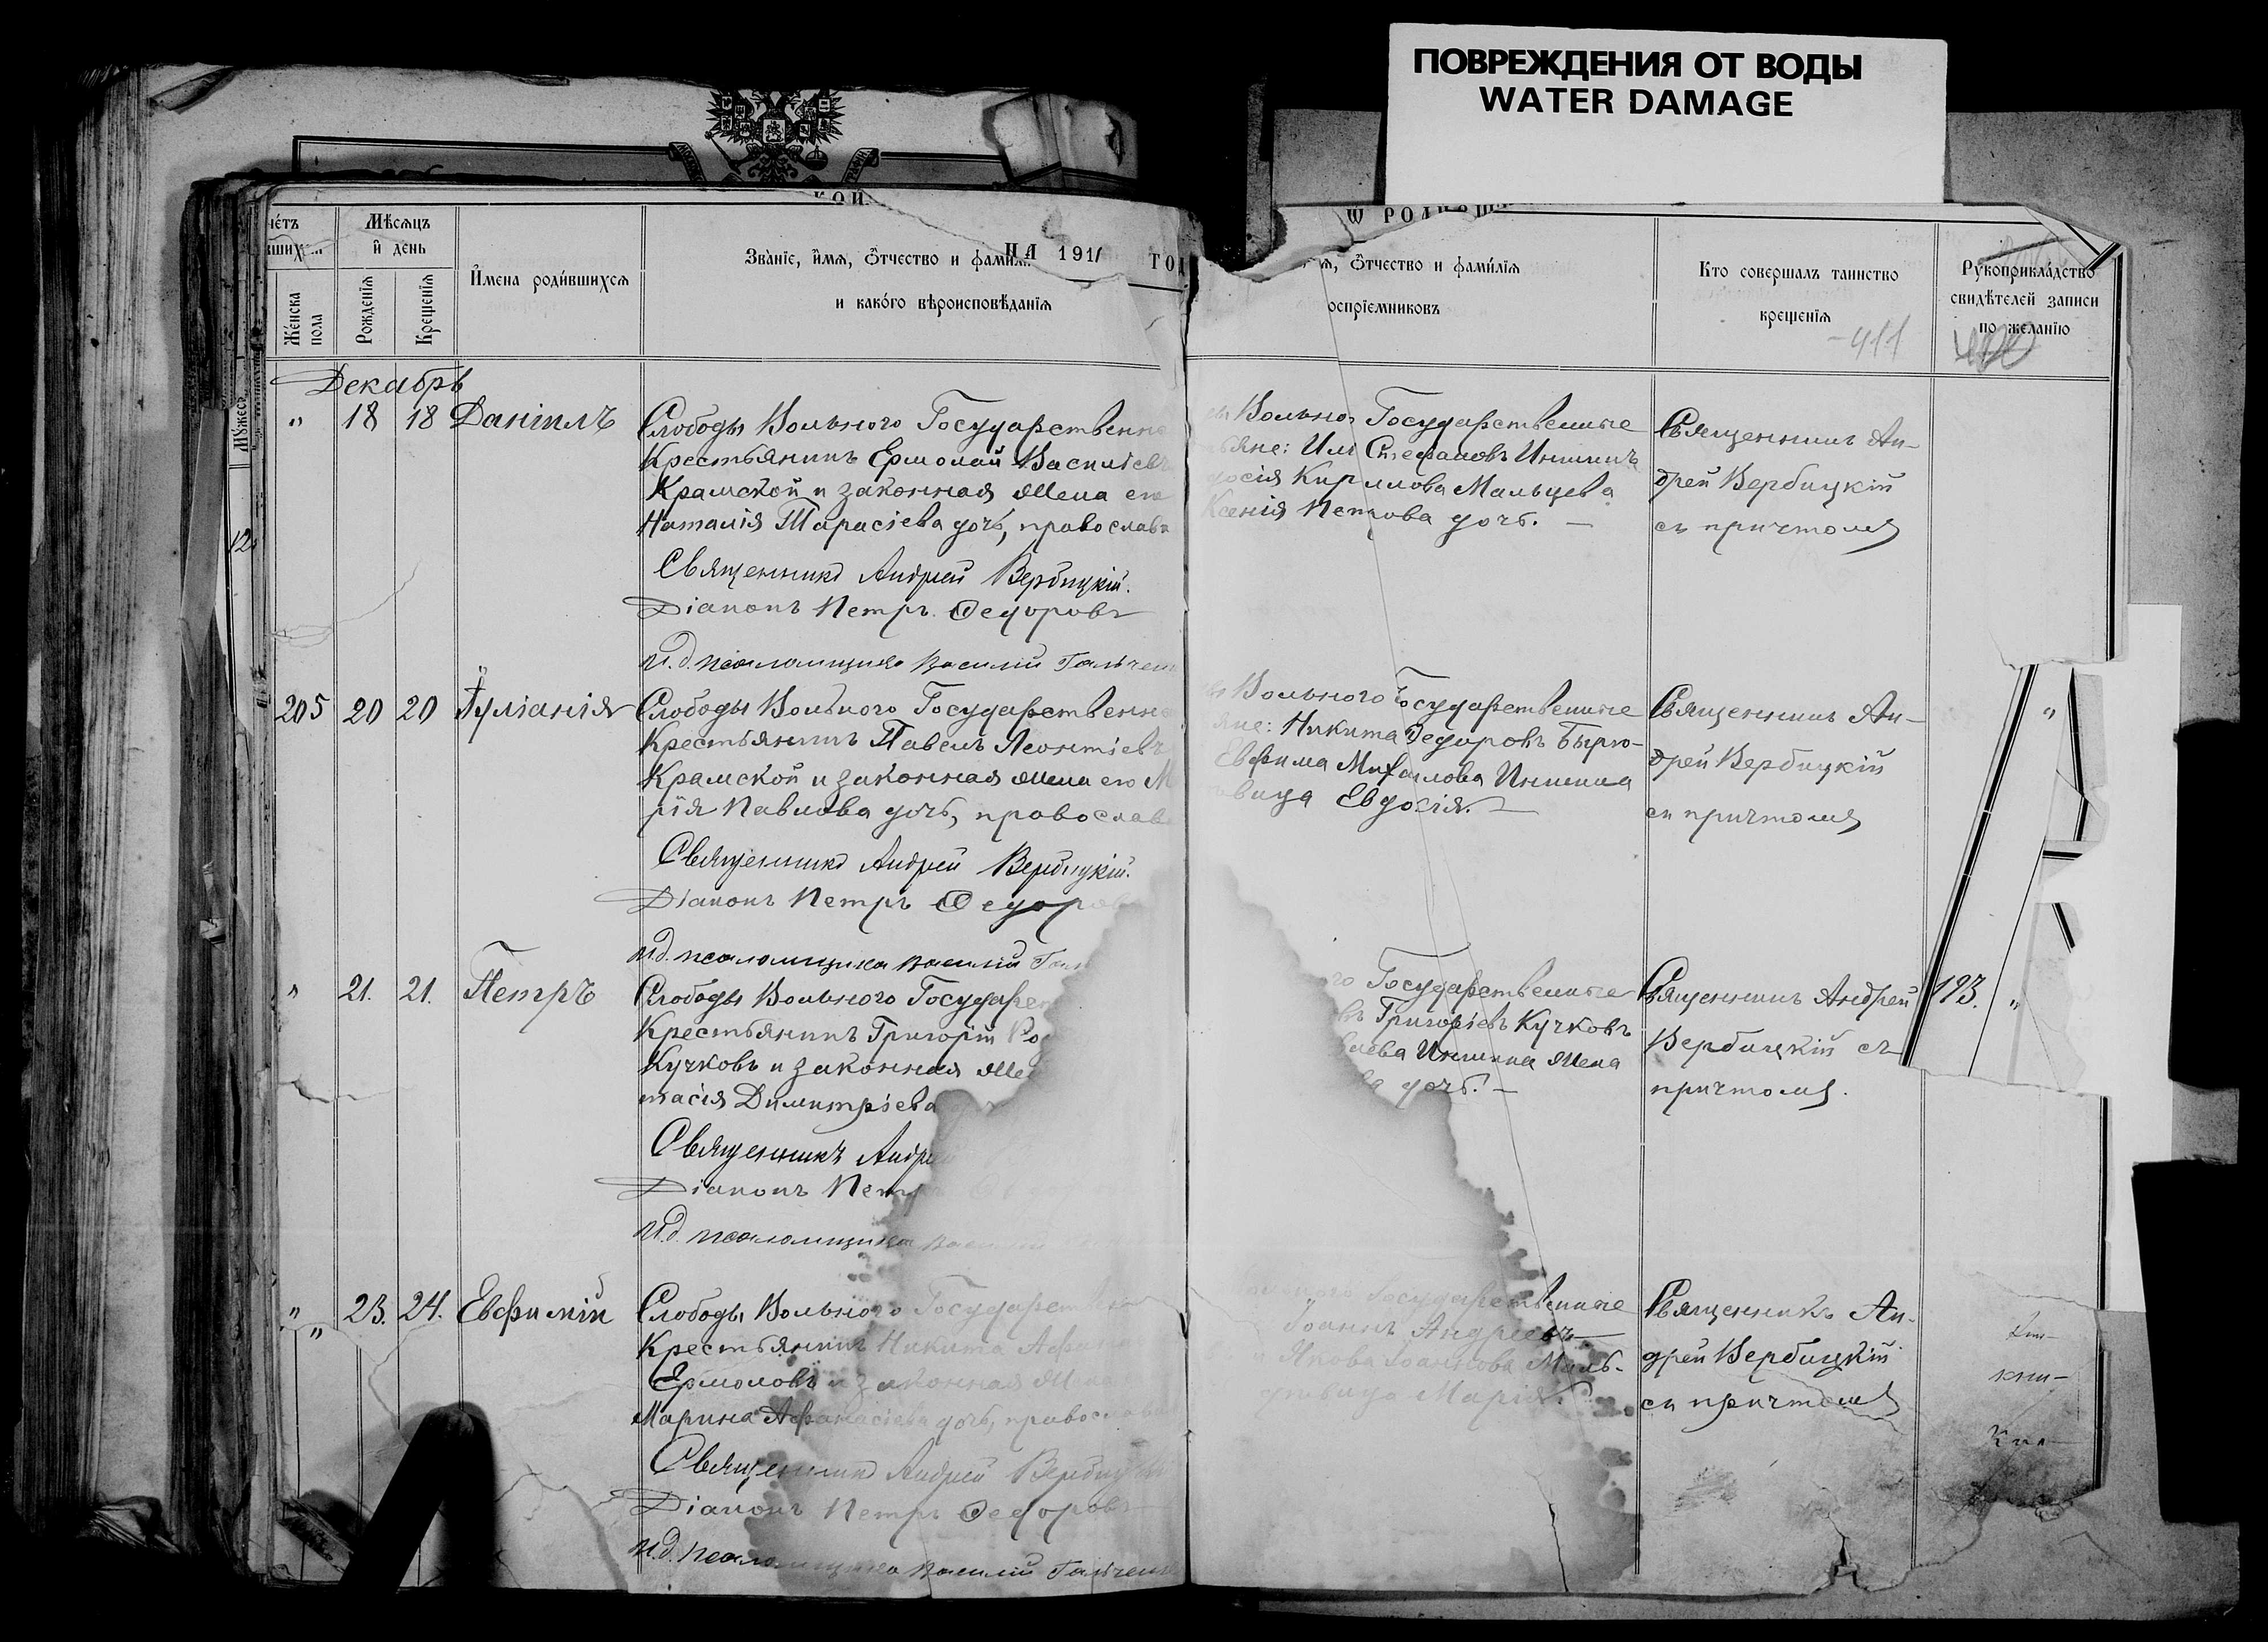 ПОВРЕЖДЕНИЯ ОТ ВОДЫ
WATER DAMAGE
НА 1911
Мѣсяцъ
и день
Женска
пола
Рожденїя
Крещенїя
Имена родившихся
Званїе, имя, отчество и фамил
и какого вѣроисповѣданїя
отчество и фамилїя
оспрїемниковъ
Кто совершалъ таинство
крещенїя
Рукоприкладство
свидѣтелей записи
по желанїю
-411
Декабрь
" 18 18 Данiилъ
Слободы Вольного Государственн
Крестьянинъ Ермолай Василiевъ
Крамской и законная жена его
Наталiя Тарасiева дочь, православ
Священникъ Андрей Вербицкiй.
Дiаконъ Петръ Федоровъ
И.д. псаломщика Василiй Гальчен
Вольно Государственные
яне: Стефановъ Иншинъ
досiя Кириллова Мальцева
Ксенiя Петрова дочь. —
Священникъ Ан-
дрей Вербицкiй
съ причтомъ
205 20 20 Iулiанiя
Слободы Вольного Государственно
Крестьянинъ Павелъ Леонтiевъ
Крамской и законная жена его М
рiя Павлова дочь, православ
Священникъ Андрей Вербицкiй.
Дiаконъ Петръ Федоров
И.д. псаломщика Василiй Гал
Вольного Государственные
яне: Никита Федоровъ Бырю-
Евфима Михаилова Иншина
вица Евдосiя. —
Священникъ Ан-
дрей Вербицкiй
съ причтомъ
"
" 21. 21. Петръ
Слободы Вольного Государ
Крестьянинъ Григорiй Ро
Кучковъ и законная же
тасiя Димитрiева
Священникъ Андре
Дiаконъ Петръ
И.д. псаломщика Василiй
го Государственные
въ Григорiевъ Кучковъ
Иншина жена
ва дочь. —
Священникъ Андрей
Вербицкiй съ
причтомъ.
193. "
" 23. 24. Евфимiй
Слободы Вольного Государствен
Крестьянинъ Никита Афан
Ермоловъ и законная же
Марина Афанасiева дочь, православ
Священникъ Андрей Вербицкiй
Дiаконъ Петръ Федоровъ
И.д. псаломщика Василiй Гальчен
Государственные
Iоаннъ Андреевъ
Якова Iоаннова Маль-
дѣвица Марiя.
Священникъ Ан-
дрей Вербицкiй
съ причтомъ